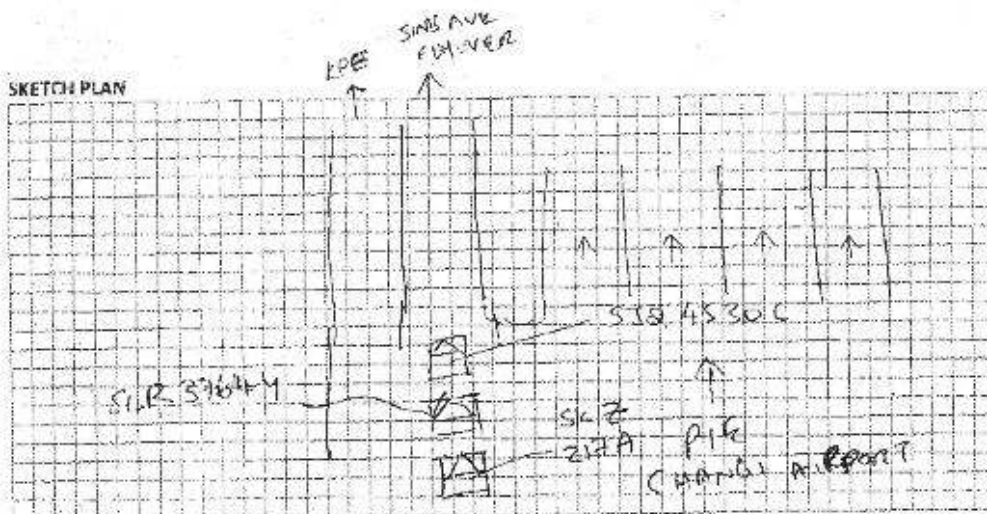 KPE
SIMS AVE
FLY-OVER
SKETCH PLAN
SJQ 4530C
SLR 3764Y
SKZ
217A
PIE
CHANGI AIRPORT